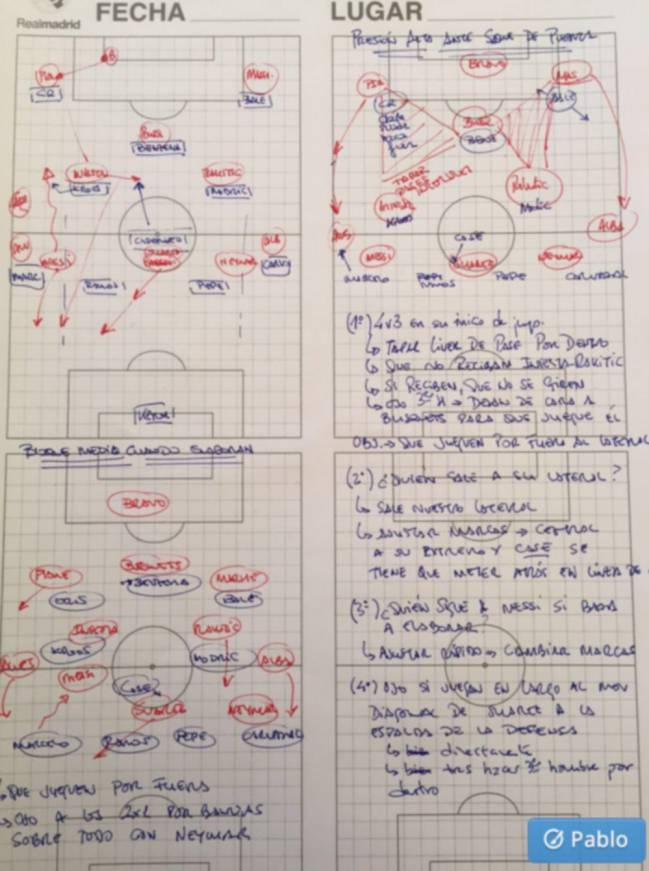 Realmadrid
FECHA
LUGAR
B
CR
BALE
BENZEMA
KROOS
MODRIC
CASEMIRO
MESSI
NEYMAR
MARC
RAMOS
PEPE
CARVA
BLOQUE MEDIO CUANDO ELABORAN
BRAVO
PIQUE
BUSQUETS
BENZEMA
CRIS
BALE
INIESTA
RAKITIC
KROOS
MODRIC
ALVES
MESSI
ALBA
CASE
SUAREZ
NEYMAR
MARCELO
RAMOS
PEPE
CARVAJAL
QUE JUEGUEN POR FUERA
OJO A LOS 2x1 POR BANDAS
SOBRE TODO CON NEYMAR
PRESIÓN ALTA ANTE SAQUE DE PUERTA
BRAVO
CR
BALE
BUSI
BENZE
TAPAR
INIESTA
KROOS
Rakitic
Modric
ALBA
CASE
MESSI
SUAREZ
NEYMAR
MARCELO
PEPE
RAMOS
PEPE
CARVAJAL
(1º) 4v3 en su inicio de juego.
↳ TAPAR LINEA DE PASE POR DENTRO
↳ QUE NO RECIBAN INIESTA-RAKITIC
↳ SI RECIBEN, QUE NO SE GIREN
↳ OJO 3er H → DEJAN DE CARA A
BUSQUETS PARA QUE JUEGUE ÉL
OBJ. → QUE JUEGUEN POR FUERA AL LATERAL
(2º) ¿QUIÉN SALE A SU LATERAL?
↳ SALE NUESTRO LATERAL
↳ AJUSTAR MARCAS → CENTRAL
A SU EXTREMO Y CASE SE
TIENE QUE METER ATRÁS EN LÍNEA DE
(3º) ¿QUIÉN SIGUE A MESSI SI BAJA
A ELABORAR?
↳ AJUSTAR RÁPIDO → CAMBIAR MARCAS
(4º) OJO SI JUEGAN EN LARGO AL MOV
DIAGONAL DE SUAREZ A LA
ESPALDA DE LA DEFENSA
↳ bien directamente
↳ bien tras hacer 3er hombre por
dentro
Pablo